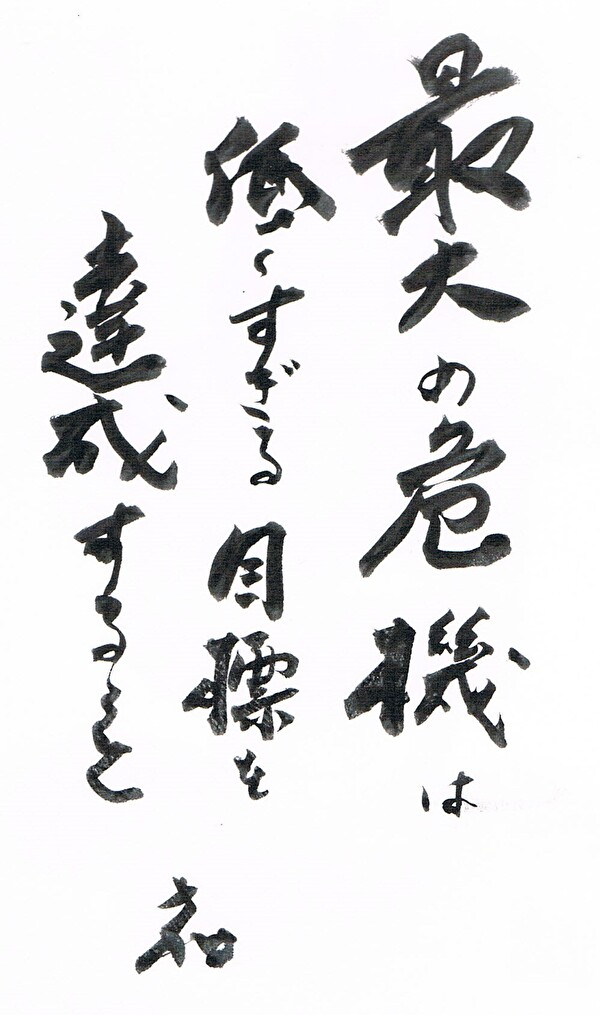 最大の危機は
低くすぎる目標を
達成すること